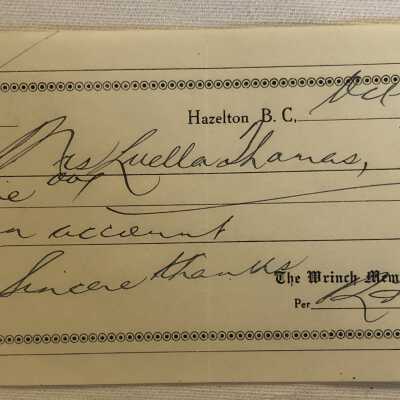 Hazelton B. C., Oct
Mrs Luella Thomas,
on account
Sincere thanks
The Wrinch Mem
Per